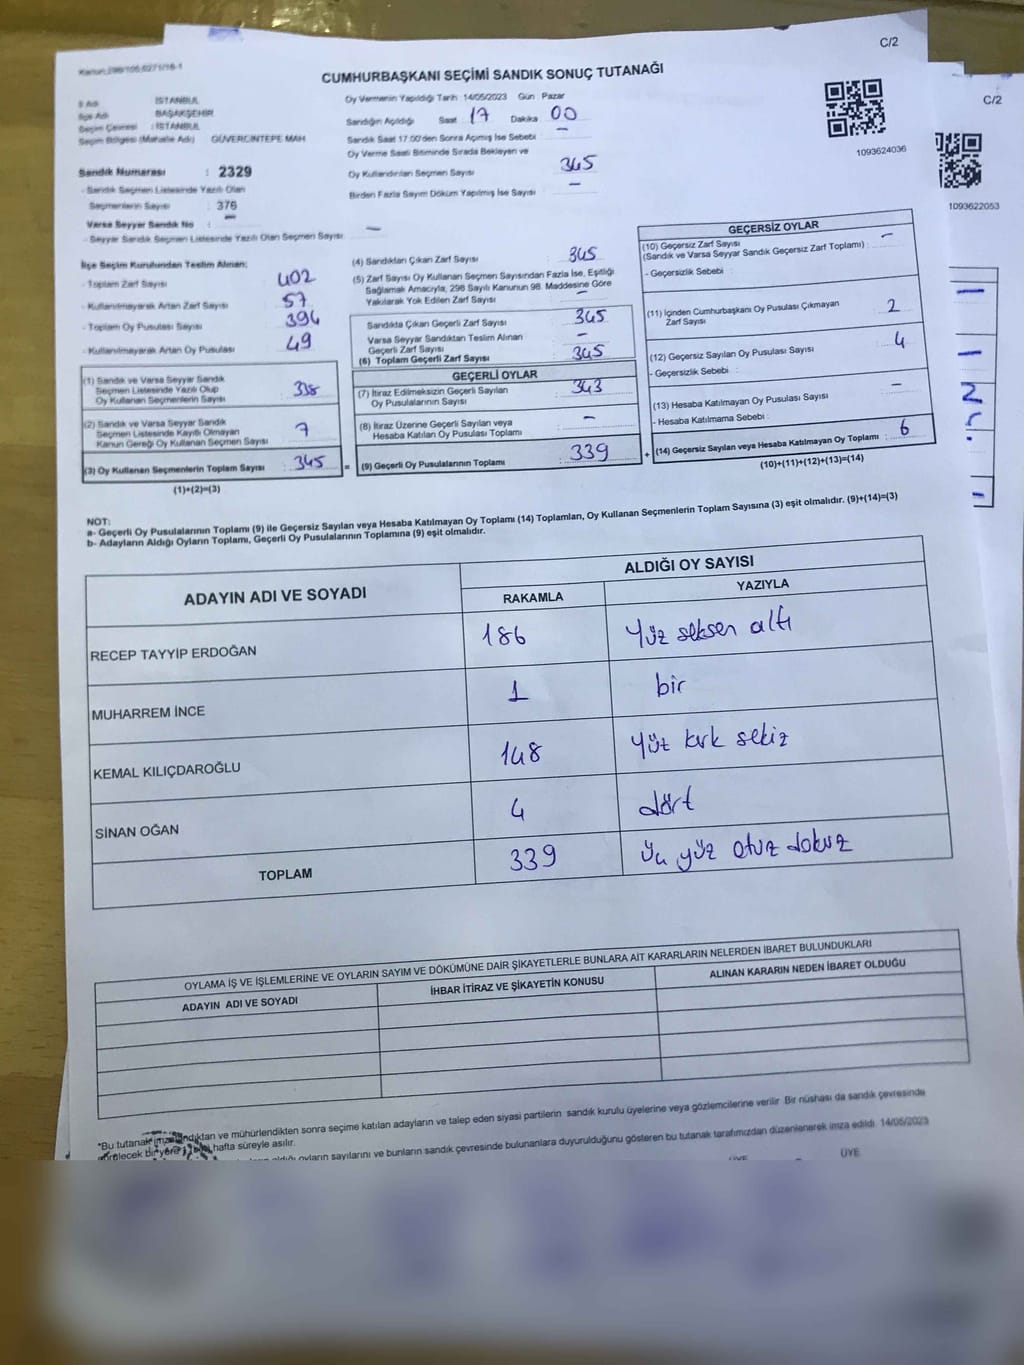 Kanun:298/105,6271/16-1
C/2
CUMHURBAŞKANI SEÇİMİ SANDIK SONUÇ TUTANAĞI
İl Adı : İSTANBUL
İlçe Adı : BAŞAKŞEHİR
Seçim Çevresi : İSTANBUL
Seçim Bölgesi (Mahalle Adı) : GÜVERCİNTEPE MAH
Sandık Numarası : 2329
- Sandık Seçmen Listesinde Yazılı Olan
Seçmenlerin Sayısı : 376
Varsa Seyyar Sandık No : –
- Seyyar Sandık Seçmen Listesinde Yazılı Olan Seçmen Sayısı : –
Oy Vermenin Yapıldığı Tarih : 14/05/2023 Gün : Pazar
Sandığın Açıldığı Saat : 17 Dakika : 00
Sandık Saat 17:00'den Sonra Açımış İse Sebebi : –
Oy Verme Saati Bitiminde Sırada Bekleyen ve
Oy Kullandırılan Seçmen Sayısı : 345
Birden Fazla Sayım Döküm Yapılmış İse Sayısı : –
1093624036
C/2
1093622053
İlçe Seçim Kurulundan Teslim Alınan;
- Toplam Zarf Sayısı : 402
- Kullanılmayarak Artan Zarf Sayısı : 57
- Toplam Oy Pusulası Sayısı : 394
- Kullanılmayarak Artan Oy Pusulası : 49
(1) Sandık ve Varsa Seyyar Sandık
Seçmen Listesinde Yazılı Olup
Oy Kullanan Seçmenlerin Sayısı : 338
(2) Sandık ve Varsa Seyyar Sandık
Seçmen Listesinde Kayıtlı Olmayan
Kanun Gereği Oy Kullanan Seçmen Sayısı : 7
(3) Oy Kullanan Seçmenlerin Toplam Sayısı : 345 =
(1)+(2)=(3)
(4) Sandıktan Çıkan Zarf Sayısı : 345
(5) Zarf Sayısı Oy Kullanan Seçmen Sayısından Fazla İse, Eşitliği
Sağlamak Amacıyla, 298 Sayılı Kanunun 98. Maddesine Göre
Yakılarak Yok Edilen Zarf Sayısı : –
Sandıkta Çıkan Geçerli Zarf Sayısı : 345
Varsa Seyyar Sandıktan Teslim Alınan
Geçerli Zarf Sayısı : –
(6) Toplam Geçerli Zarf Sayısı : 345
GEÇERLİ OYLAR
(7) İtiraz Edilmeksizin Geçerli Sayılan
Oy Pusulalarının Sayısı : 343
(8) İtiraz Üzerine Geçerli Sayılan veya
Hesaba Katılan Oy Pusulası Toplamı : –
(9) Geçerli Oy Pusulalarının Toplamı : 339 +
GEÇERSİZ OYLAR
(10) Geçersiz Zarf Sayısı
(Sandık ve Varsa Seyyar Sandık Geçersiz Zarf Toplamı) : –
- Geçersizlik Sebebi :
(11) İçinden Cumhurbaşkanı Oy Pusulası Çıkmayan
Zarf Sayısı : 2
(12) Geçersiz Sayılan Oy Pusulası Sayısı : 4
- Geçersizlik Sebebi :
(13) Hesaba Katılmayan Oy Pusulası Sayısı : –
- Hesaba Katılmama Sebebi :
(14) Geçersiz Sayılan veya Hesaba Katılmayan Oy Toplamı : 6
(10)+(11)+(12)+(13)=(14)
NOT:
a- Geçerli Oy Pusulalarının Toplamı (9) ile Geçersiz Sayılan veya Hesaba Katılmayan Oy Toplamı (14) Toplamları, Oy Kullanan Seçmenlerin Toplam Sayısına (3) eşit olmalıdır. (9)+(14)=(3)
b- Adayların Aldığı Oyların Toplamı, Geçerli Oy Pusulalarının Toplamına (9) eşit olmalıdır.
ADAYIN ADI VE SOYADI
ALDIĞI OY SAYISI
RAKAMLA YAZIYLA
RECEP TAYYİP ERDOĞAN 186 Yüz seksen altı
MUHARREM İNCE 1 bir
KEMAL KILIÇDAROĞLU 148 Yüz kırk sekiz
SİNAN OĞAN 4 dört
TOPLAM 339 Üç yüz otuz dokuz
OYLAMA İŞ VE İŞLEMLERİNE VE OYLARIN SAYIM VE DÖKÜMÜNE DAİR ŞİKAYETLERLE BUNLARA AİT KARARLARIN NELERDEN İBARET BULUNDUKLARI
ADAYIN ADI VE SOYADI İHBAR İTİRAZ VE ŞİKAYETİN KONUSU ALINAN KARARIN NEDEN İBARET OLDUĞU
*Bu tutanak ve mühürlendikten sonra seçime katılan adayların ve talep eden siyasi partilerin sandık kurulu üyelerine veya gözlemcilerine verilir. Bir nüshası da sandık çevresinde
hafta süreyle asılır.
oyların sayılarını ve bunların sandık çevresinde bulunanlara duyurulduğunu gösteren bu tutanak tarafımızdan düzenlenerek imza edildi. 14/05/2023
ÜYE ÜYE